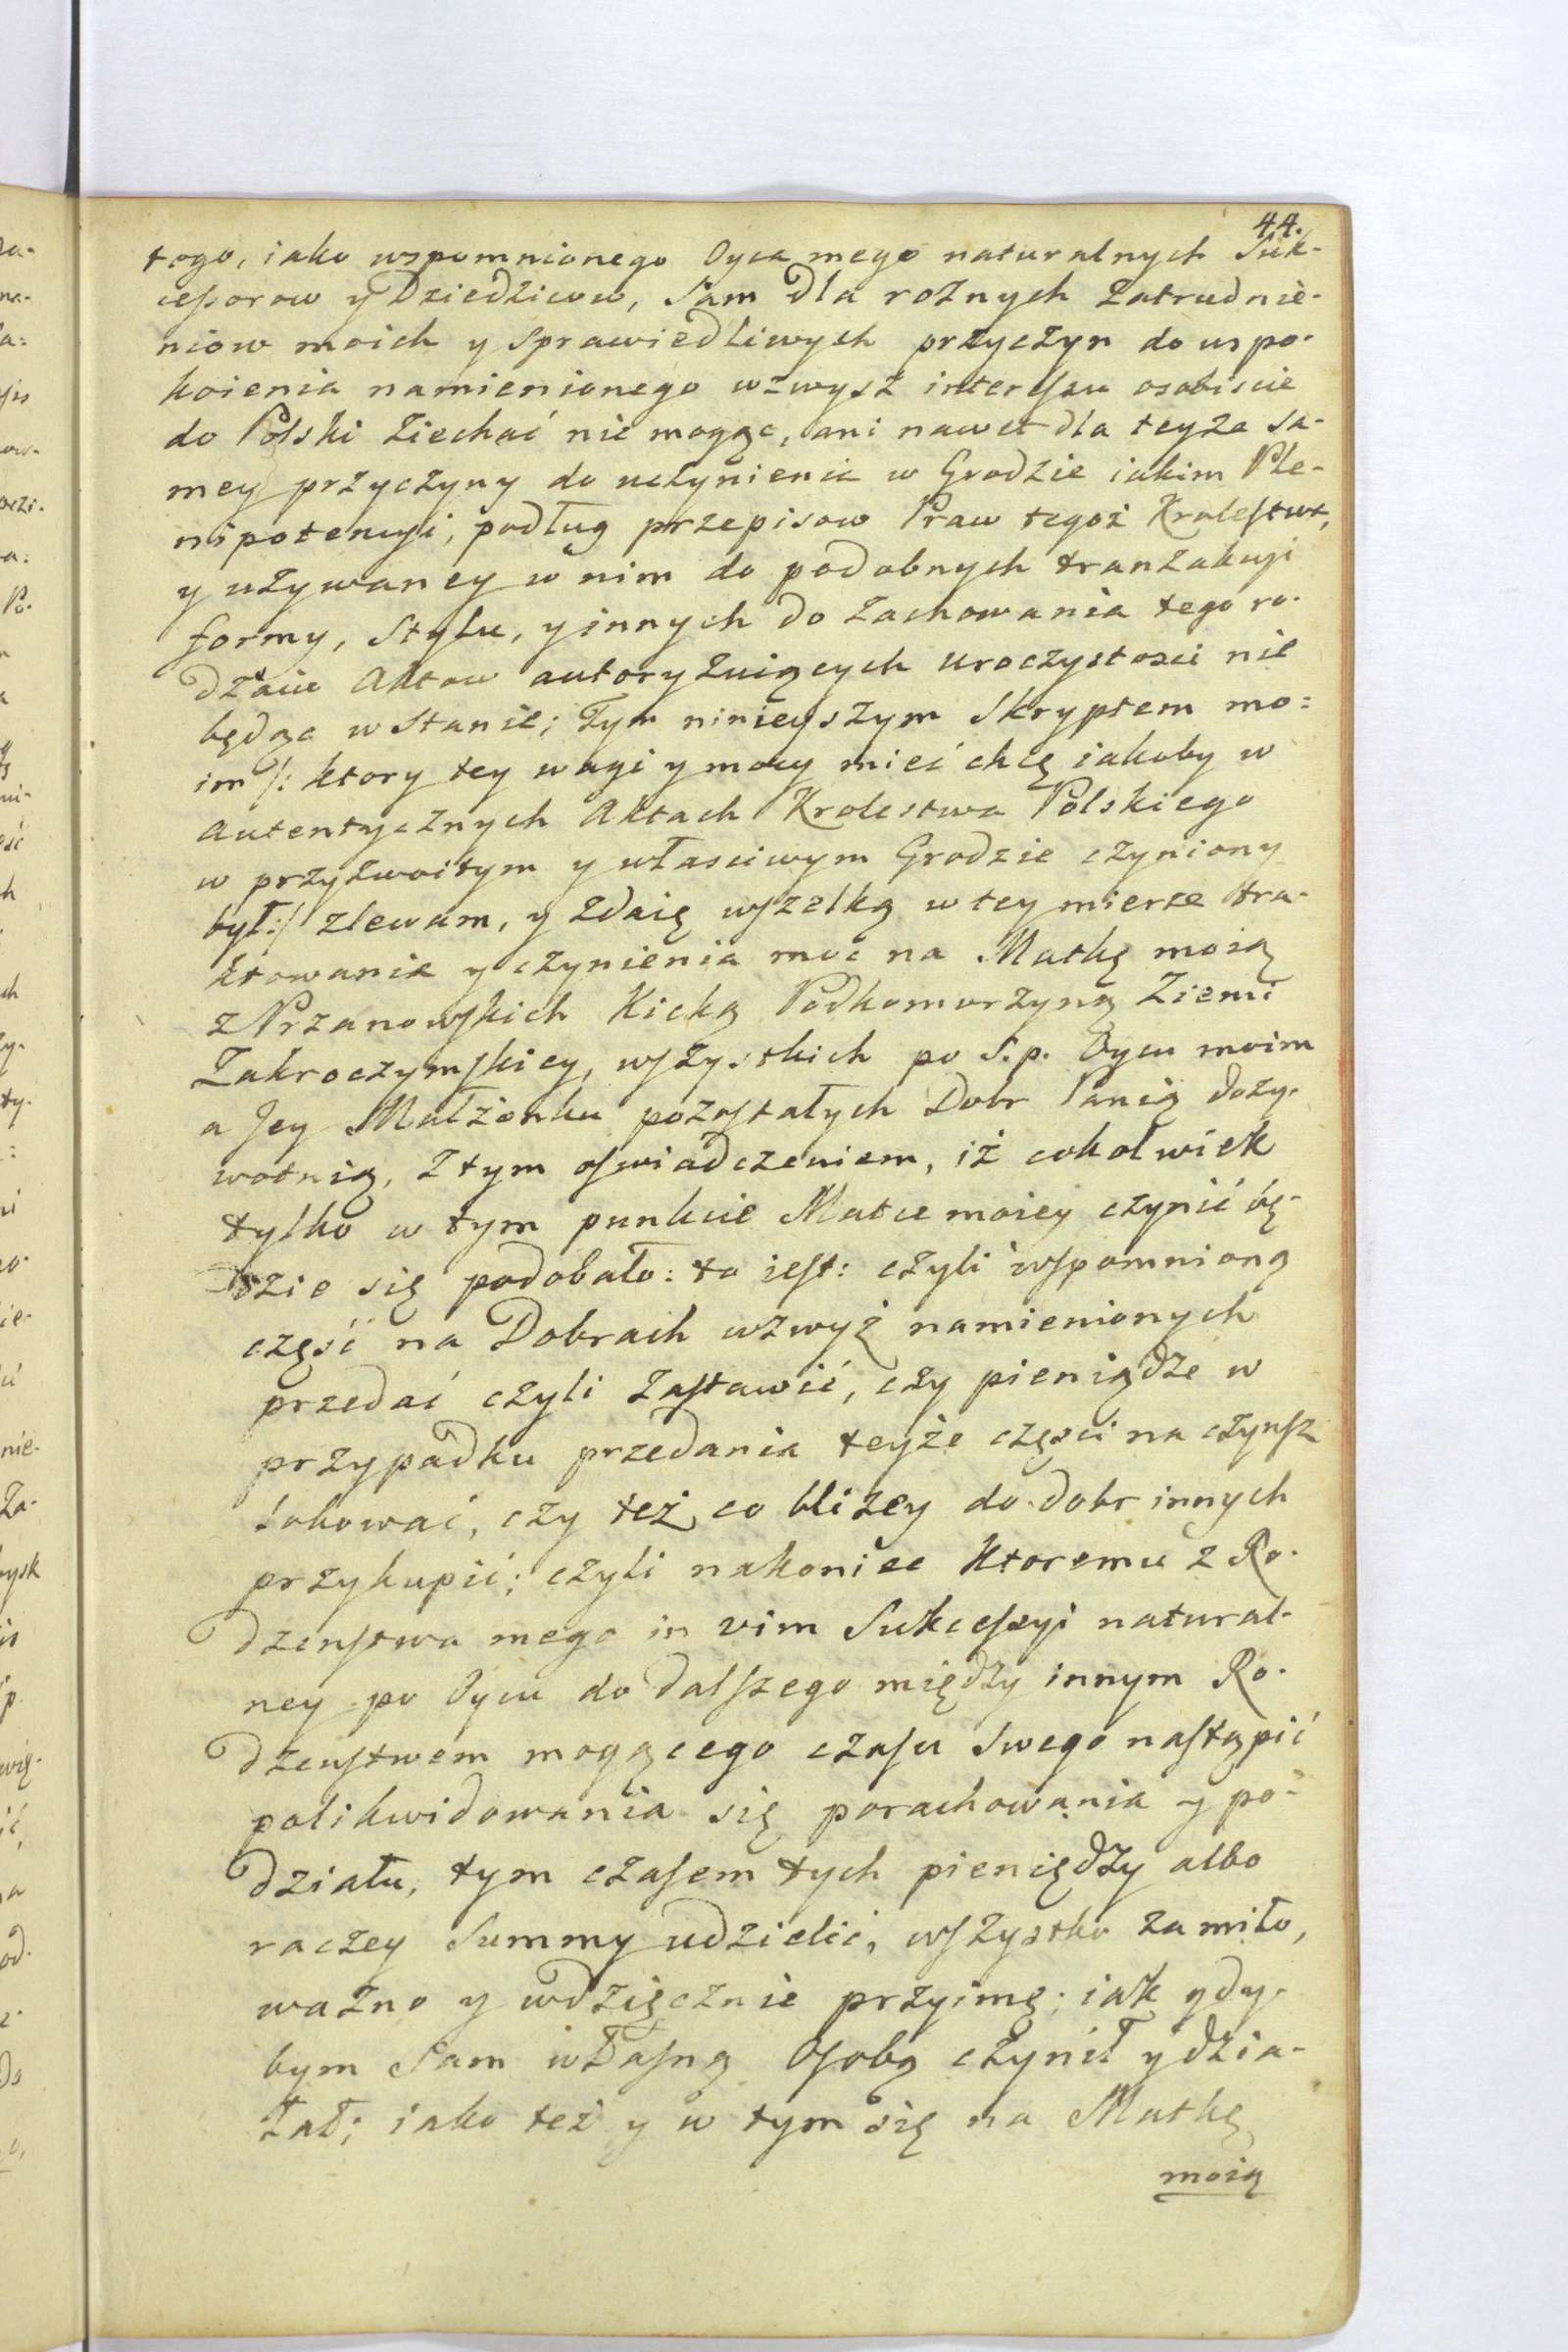 44.
tego, iako wspomnionego Oyca mego naturalnych Suk-
cessorow y Dziedzicow, Sam dla rożnych zatrudnie-
niow moich y sprawiedliwych przyczyn do uspo-
koienia namienionego wzwysz interessu osobiscie
do Polski ziechać nie mogąc, ani nawet dla teyże sa-
mey przyczyny do uczynienia w Grodzie iakim Ple-
nipotencyi, podług przepisow Praw tegoż Krolestwa,
y używaney w nim do podobnych tranzakcyi
formy, Stylu, y innych do zachowania tego ro-
dzaiu Aktow autoryzuiących uroczystosci nie
będąc w stanie; Tym ninieyszym Skryptem mo-
im /: ktory tey wagi y mocy mieć chcę iakoby w
autentycznych Aktach Krolestwa Polskiego
w przyzwoitym y własciwym Grodzie czyniony
był :/ zlewam, y zdaię wszelką w tey mierze tra-
ktowania y czynienia moc na Matkę moią
z Przanowskich Kicką Podkomorzyną Ziemi
Zakroczymskiey, wszystkich po S.p. Oycu moim
a Jey Małżonku pozostałych Dobr Panią doży-
wotnią, z tym oswiadczeniem, iż cokolwiek
tylko w tym punkcie Matce moiey czynić bę-
dzie się podobało: to iest: czyli wspomnioną
część na Dobrach wzwyż namienionych
przedać czyli zastawić, czy pieniądze w
przypadku przedania teyże częsci na czynsz
lokować, czy też co bliżey do dobr innych
przykupić; czyli nakoniec ktoremu z Ro-
dzenstwa mego in vim Sukcessyi natural-
ney po Oycu do dalszego między innym Ro-
dzenstwem mogącego czasu swego nastąpić
polikwidowania się porachowania y po-
działu, tym czasem tych pieniędzy albo
raczey Summy udzielić, wszystko za miło,
ważno y wdzięcznie przyimę; iak gdy-
bym Sam własną Osobą czynił y dzia-
łał; iako też y w tym się na Matkę
moią